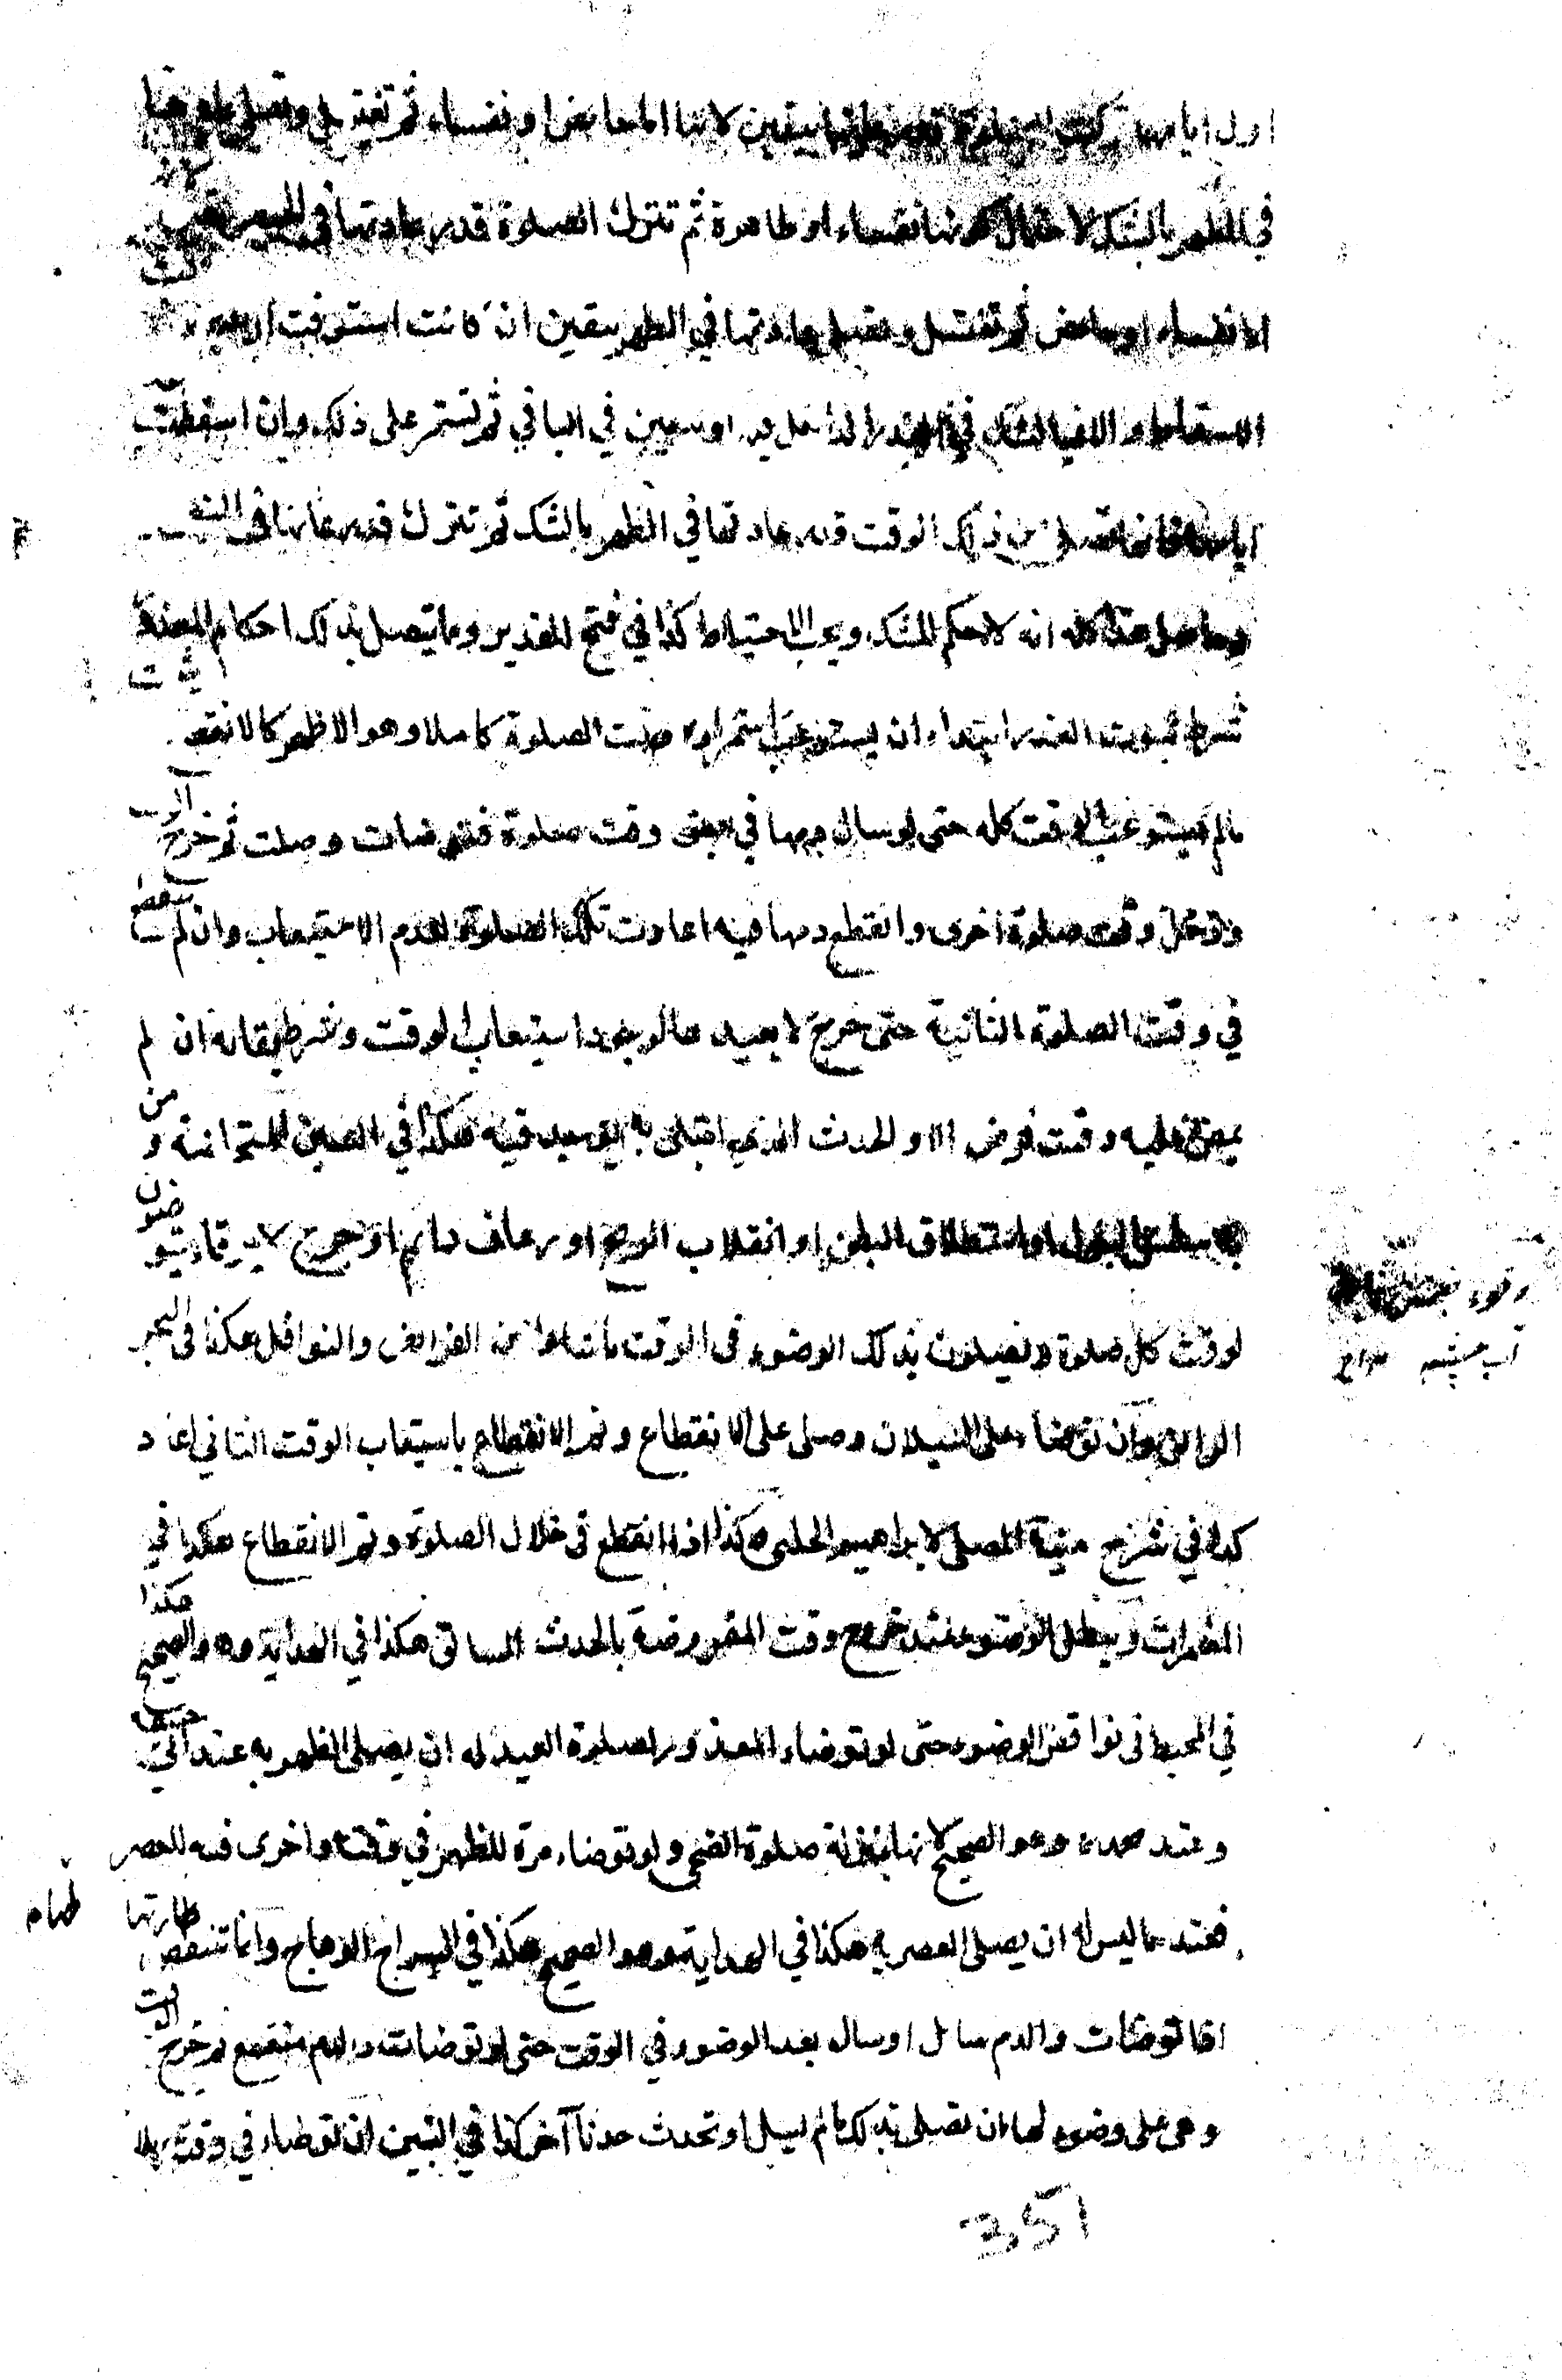 اول ايامها تركت الصلوة قدر عادتها بيقين لانها اما حائض او نفساء ثم تغتسل وتصلى عادتها
في الطهر بالشك لاحتمال كونها نفساء او طاهرة ثم تترك الصلوة قدر عادتها في الحيض بيقين لانها
اما نفساء او حائض ثم تغتسل وتصلى عادتها في الطهر بيقين ان كانت استوفت اربعين من وقت
الاسقاط والا فبالشك في القدر الداخل فيها وبيقين في الباقي ثم تستمر على ذلك وان اسقطت بعد
ايامها فانها تصلى من ذلك الوقت قدر عادتها في الطهر بالشك ثم تترك قدر عادتها في الحيض بيقين
وحاصل هذا كله انه لا حكم للشك ويجب الاحتياط كذا في فتح القدير ومما يتصل بذلك احكام المعذور
شرط ثبوت العذر ابتداء ان يستوعب استمراره وقت الصلوة كاملا وهو الاظهر كالانقطاع لا يثبت
مالم يستوعب الوقت كله حتى لو سال دمها في بعض وقت صلوة فتوضات وصلت ثم خرج الوقت
ودخل وقت صلوة اخرى وانقطع دمها فيه اعادت تلك الصلوة لعدم الاستيعاب وان لم ينقطع
في وقت الصلوة الثانية حتى خرج لا تعيدها لوجود استيعاب الوقت وشرط بقائه ان لم
يمض عليه وقت فرض الا والحدث الذي ابتلى به يوجد فيه هكذا في التبيين المستحاضة ومن
به سلس البول او استطلاق البطن او انفلات الريح او رعاف دائم او جرح لا يرقاء يتوضون
لوقت كل صلوة ويصلون بذلك الوضوء في الوقت ما شاؤا من الفرائض والنوافل هكذا في البحر
الرائق وان توضاء على السيلان وصلى على الانقطاع وتم الانقطاع باستيعاب الوقت الثاني اعاد
كذا في شرح منية المصلى لابراهيم الحلبى وكذا اذا انقطع في خلال الصلوة وتم الانقطاع هكذا في
المضمرات ويبطل الوضوء عند خروج وقت المفروضة بالحدث السابق هكذا في الهداية وهو الصحيح هكذا
في المحيط في نواقض الوضوء حتى لو توضاء المعذور لصلوة العيد له ان يصلى الظهر به عند ابي حنيفة
وعند محمد وهو الصحيح لانها بمنزلة صلوة الضحى ولو توضاء مرة للظهر في وقته واخرى فيه للعصر
فعندهما ليس له ان يصلى العصر به هكذا في الهداية وهو الصحيح هكذا في السراج الوهاج وانما تنتقض طهارتها
اذا توضات والدم سائل او سال بعد الوضوء في الوقت حتى لو توضات والدم منقطع ثم خرج الوقت
وهى على وضوء لها ان تصلى بذلك ما لم يسل او تحدث حدثا آخر كذا في التبيين ان توضاء في وقت بلا
351